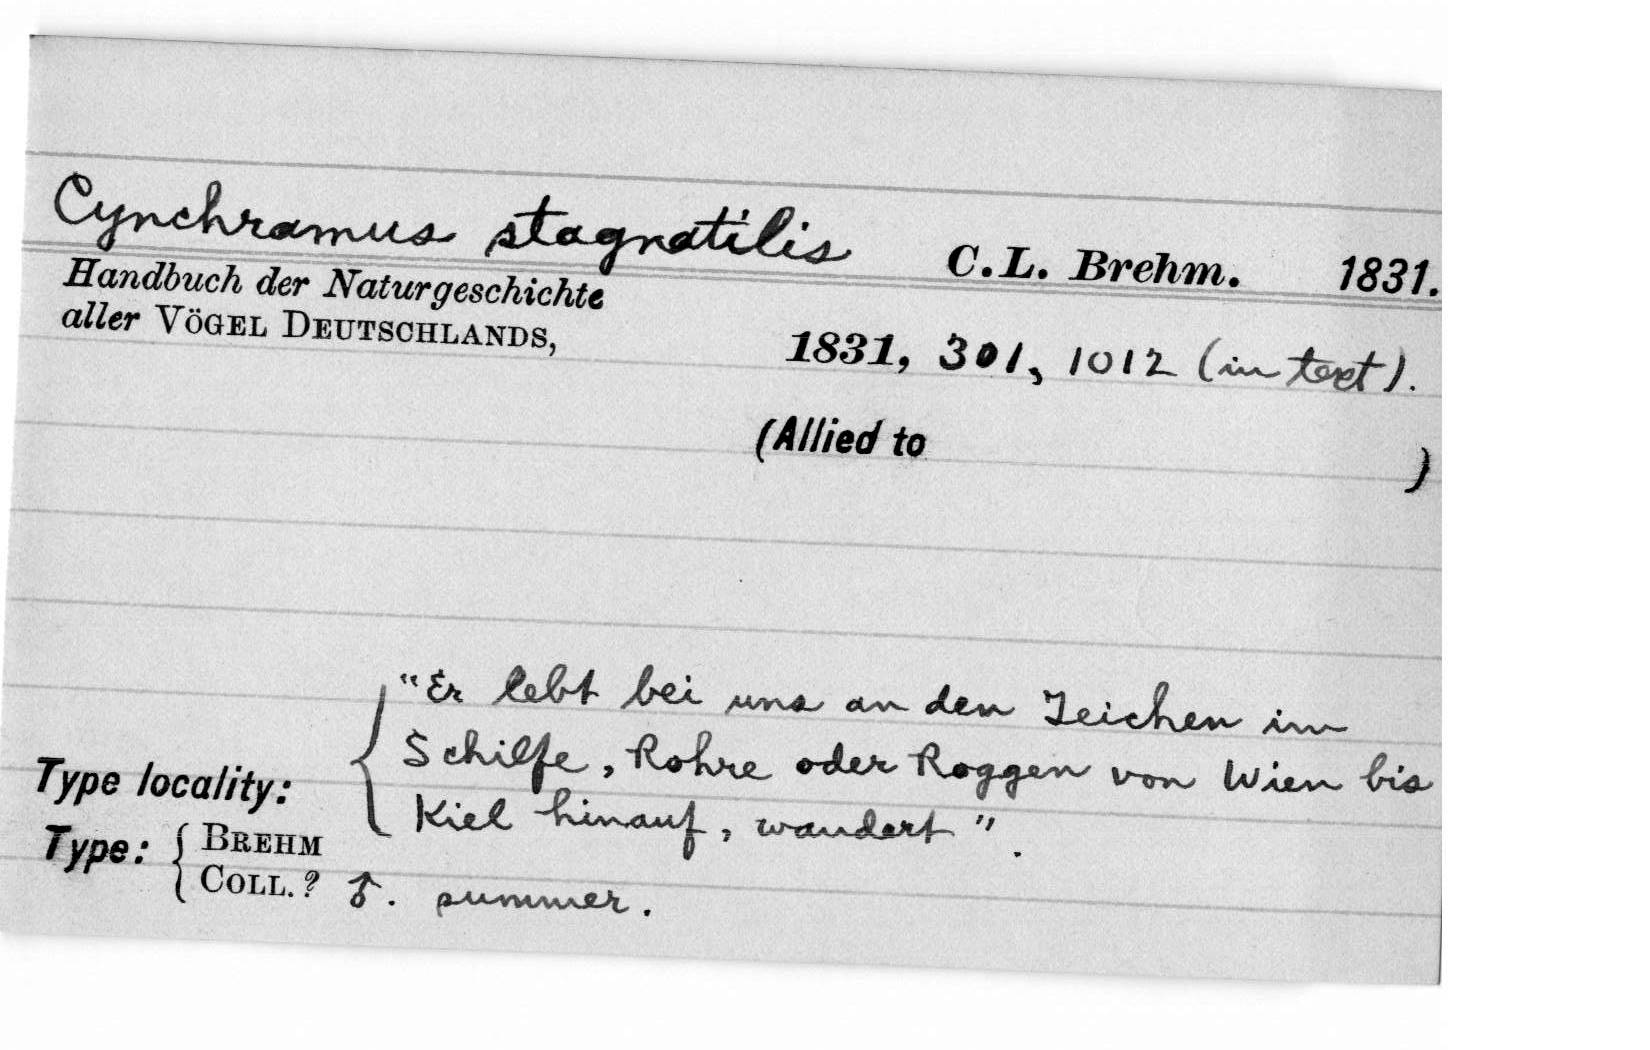 Cynchramus stagnatilis C.L. Brehm. 1831.
Handbuch der Naturgeschichte
aller VÖGEL DEUTSCHLANDS,
1831, 301, 1012 (in text).
(Allied to )
"Er lebt bei uns an den Teichen im
Schilfe, Rohre oder Roggen von Wien bis
Type locality:
Kiel hinauf, wandert".
Type: { BREHM
COLL.? ♂. summer.